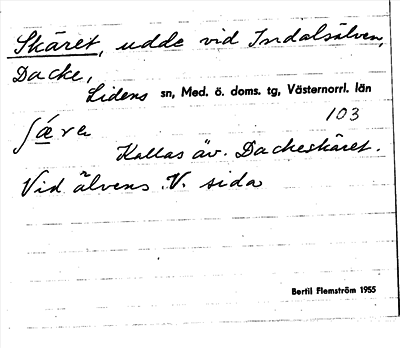 Skäret, udde vid Indalsälven,
Dacke,
Lidens sn, Med. ö. doms. tg, Västernorrl. län
103
Kallas äv. Dackeskäret.
Vid älvens V. sida
Bertil Flemström 1955